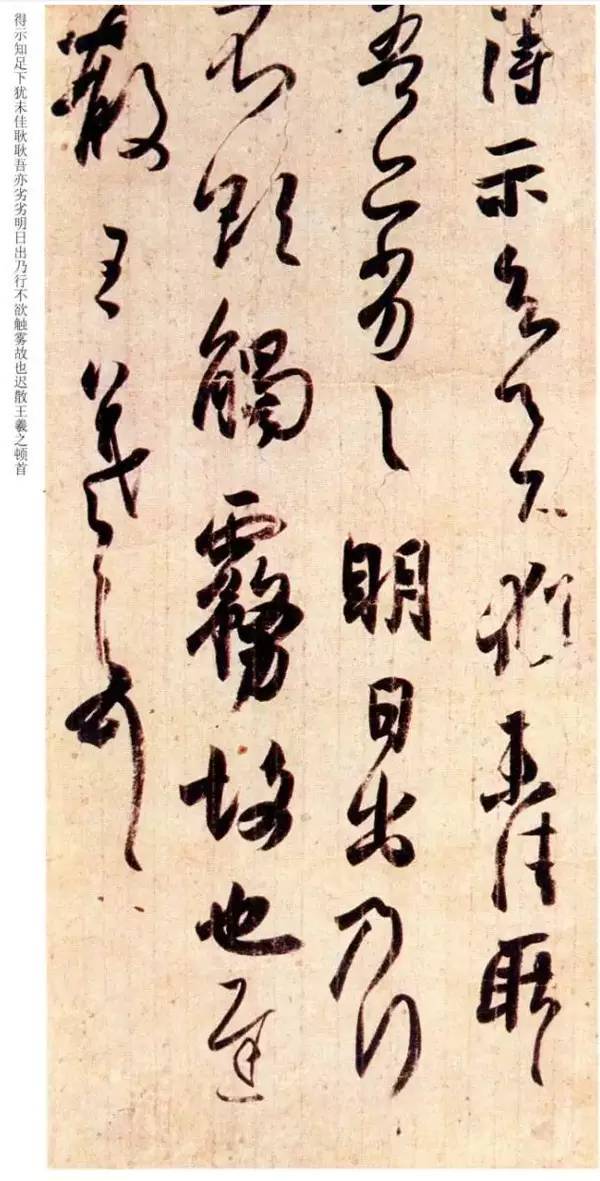 得示知足下犹未佳耿耿吾亦劣劣明日出乃行不欲触雾故也迟散王羲之顿首
得示知足下猶未佳耿〻
吾亦劣〻明日出乃行
不欲觸霧故也遲
散王羲之頓首